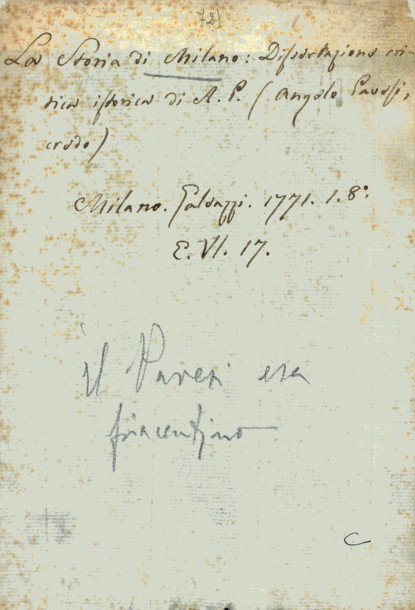 721
La Storia di Milano: Dissertazione cri-
tica istorica di A. P. (Angelo Pavesi,
credo)
Milano. Galeazzi. 1771. 1. 8°.
E. VI. 17.
il Pavesi era
piacentino
C